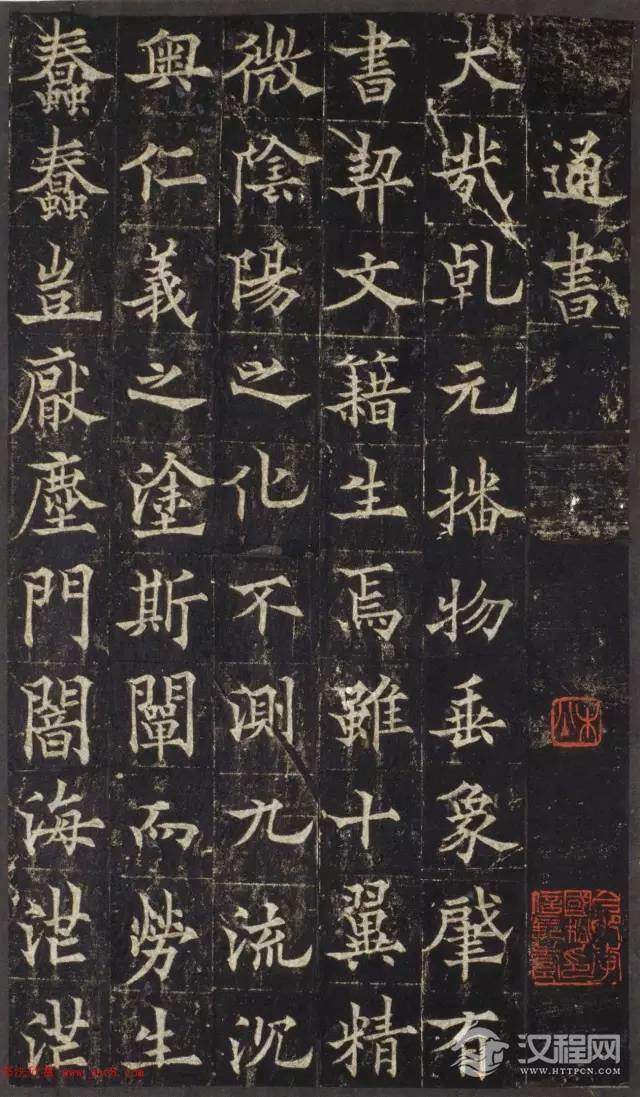 通書
大哉乹元播物垂象肇有
書契文籍生焉雖十翼精
微陰陽之化不測九流沉
奥仁義之塗斯闡而勞生
蠢蠢豈厭塵門闇海茫茫
汉程网
WWW.HTTPCN.COM